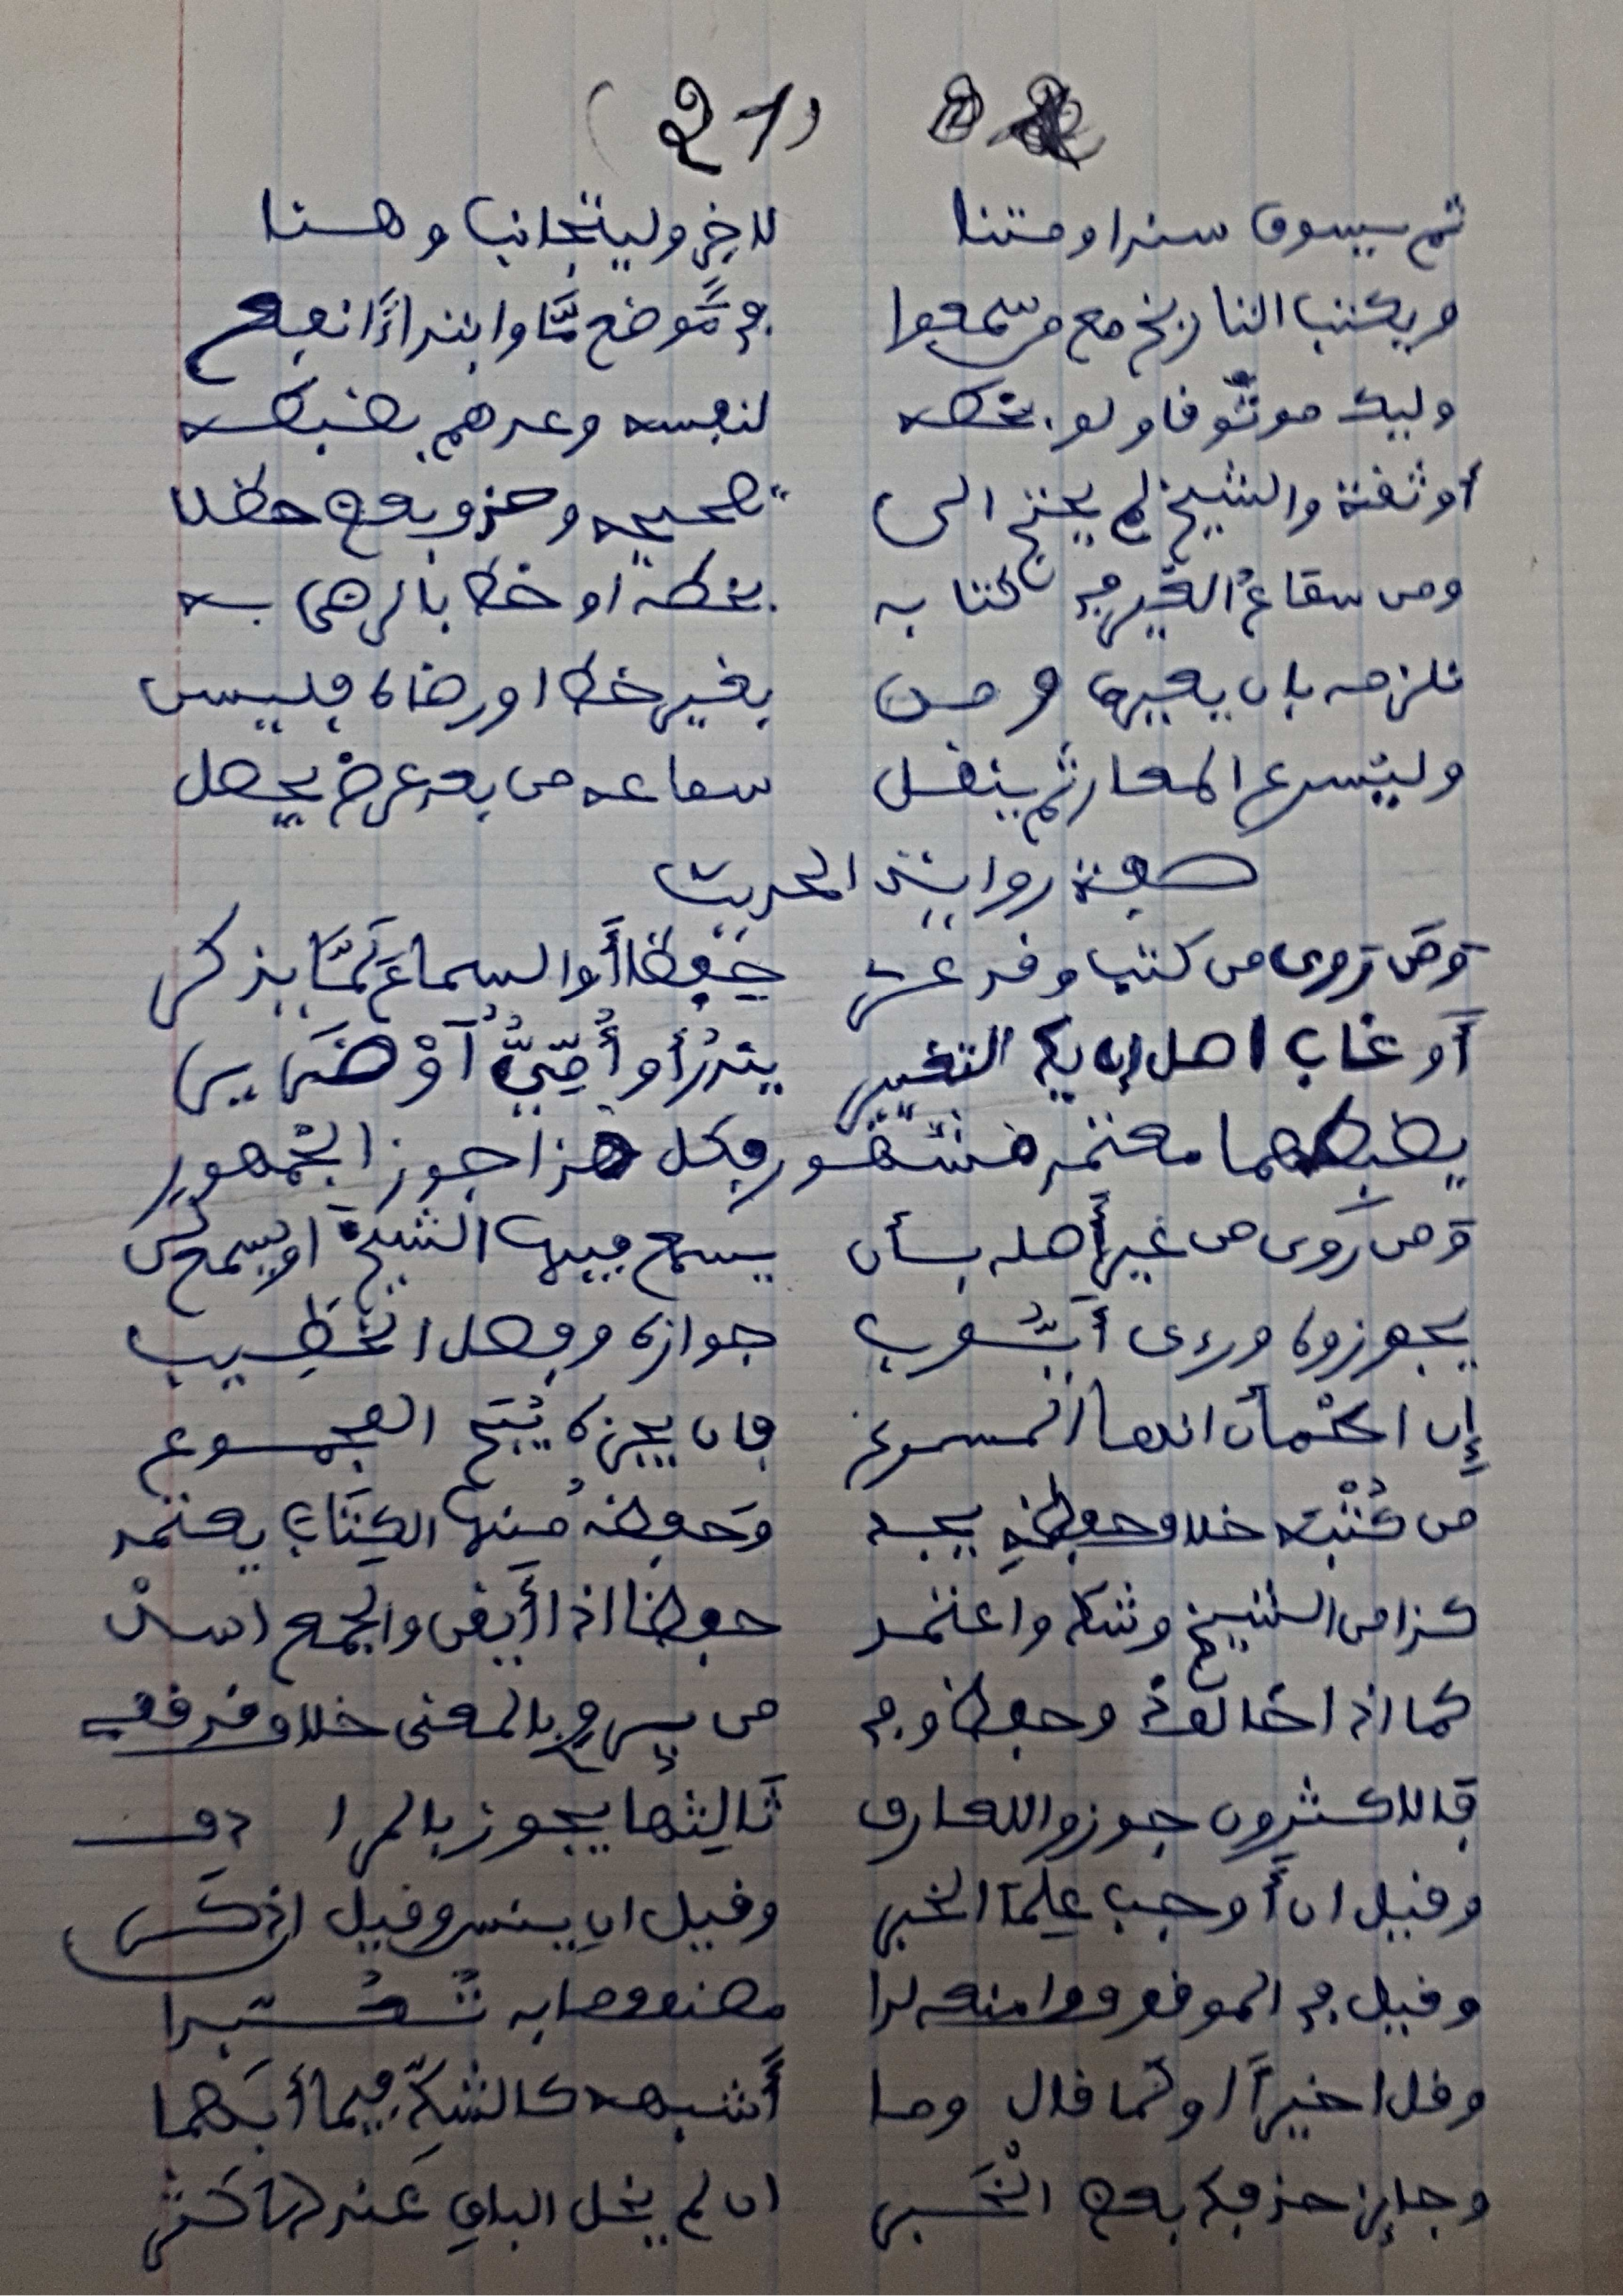 (21)
ثم يسوق سندا ومتنا لآخر وليتجانب وهنا
ويكتب التاريخ مع من سمعوا في موضع مّا وابتداءً انفع
وليك موثوقا ولو بخطه لنفسه وعدهم بضبطه
أو ثقة والشيخ لم يحتج الى تصحيحه وحذف بعض حظلا
ومن سماعُ الغير في كتابه بخطه او خط بالرضى به
نلزمه بان يعيره ومن بغير خط او رضاه فليسن
وليسرع المعار ثم ينقل سماعه من بعد عرض يحصل
صفة رواية الحديث
وَمَن رَوى من كتب وقد عرى حفظا أو السماعَ لَمَّا يذكر
أو غاب اصل ان يك التغيير يندر أو أُمِّيٌّ آوْ ضَرير
يضبطهما معتمد مشهور فكل هذا جوز الجمهور
وَمن رَوى من غير أصله بأن يسمع فيها الشيخ او يسمع لن
يجوزوه ورءى أيّوب جوازه وفصل الخطيب
إن اطمأن انها المسموع فان يجزه يُبَح المجموع
من كُتْبه خلاف حفظهِ يجد وَحفظه منها الكِتَاب يعتمد
كذا من الشيخ وشك واعتمد حفظا اذا أيقن والجمع اسد
كما اذا خالف ذو حفظ وفي من يروي بالمعنى خلاف قد قفي
فالاكثرون جوزوا للعارف ثَالِثها يجوز بالمرادف
وقيل ان أَوجب عِلمًا الخبر وقيل ان ينس وقيل ان ذكر
وقيل في الموقوف وامنعه لدا مصنف وما به تُعُبدا
وقل اخيرًا او كما قال وما أَشبهه كالشكِّ فيما أبهما
وجائز حذفك بعض الخَبر ان لم يخل الباقي عَند الاكثر